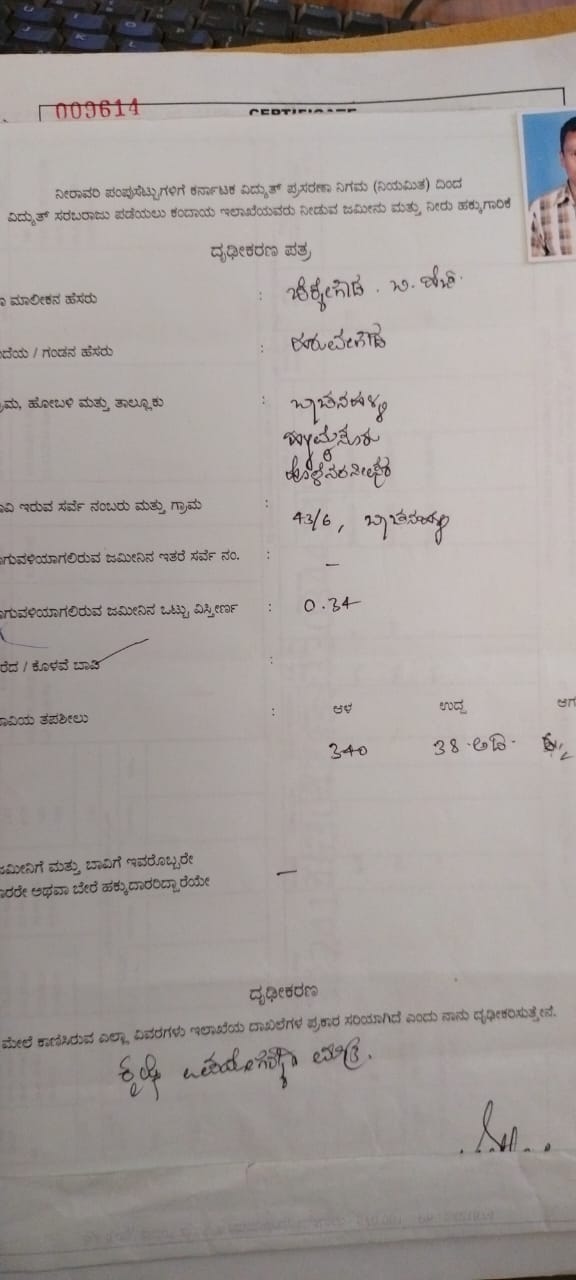 009614
CERTIFICATE
ನೀರಾವರಿ ಪಂಪುಸೆಟ್ಟುಗಳಿಗೆ ಕರ್ನಾಟಕ ವಿದ್ಯುತ್ ಪ್ರಸರಣಾ ನಿಗಮ (ನಿಯಮಿತ) ದಿಂದ
ವಿದ್ಯುತ್ ಸರಬರಾಜು ಪಡೆಯಲು ಕಂದಾಯ ಇಲಾಖೆಯವರು ನೀಡುವ ಜಮೀನು ಮತ್ತು ನೀರು ಹಕ್ಕುಗಾರಿಕೆ
ದೃಢೀಕರಣ ಪತ್ರ
ಮಾಲೀಕನ ಹೆಸರು :
ದೆಯ / ಗಂಡನ ಹೆಸರು :
ಮ, ಹೋಬಳಿ ಮತ್ತು ತಾಲ್ಲೂಕು : ಬ್ಯಾಚನಹಳ್ಳಿ
ವಿ ಇರುವ ಸರ್ವೆ ನಂಬರು ಮತ್ತು ಗ್ರಾಮ : 43/6, ಬ್ಯಾಚನಹಳ್ಳಿ
ಗುವಳಿಯಾಗಲಿರುವ ಜಮೀನಿನ ಇತರೆ ಸರ್ವೆ ನಂ. : –
ಗುವಳಿಯಾಗಲಿರುವ ಜಮೀನಿನ ಒಟ್ಟು ವಿಸ್ತೀರ್ಣ : 0.34
ರೆದ / ಕೊಳವೆ ಬಾವಿ :
ಾವಿಯ ತಪಶೀಲು : ಆಳ ಉದ್ದ ಆಗ
340 38 ಅಡಿ
ಜಮೀನಿಗೆ ಮತ್ತು ಬಾವಿಗೆ ಇವರೊಬ್ಬರೇ –
ಾರರೇ ಅಥವಾ ಬೇರೆ ಹಕ್ಕುದಾರರಿದ್ದಾರೆಯೇ
ದೃಢೀಕರಣ
ಮೇಲೆ ಕಾಣಿಸಿರುವ ಎಲ್ಲಾ ವಿವರಗಳು ಇಲಾಖೆಯ ದಾಖಲೆಗಳ ಪ್ರಕಾರ ಸರಿಯಾಗಿದೆ ಎಂದು ನಾನು ದೃಢೀಕರಿಸುತ್ತೇನೆ.